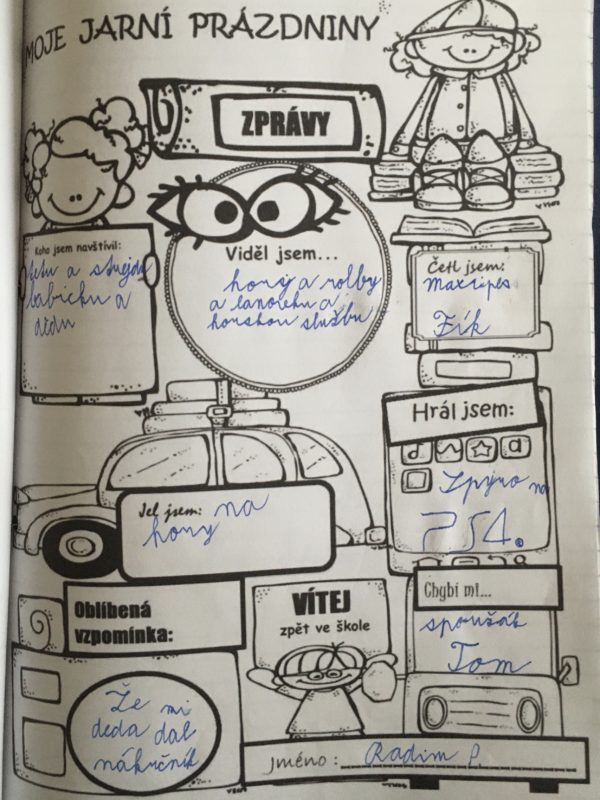 MOJE JARNÍ PRÁZDNINY
ZPRÁVY
Koho jsem navštívil:
tetu a strejdu
babičku a
dědu
Viděl jsem...
hory a rolby
a lanovku a
horskou službu
Četl jsem:
Maxipes
Fík
Hrál jsem:
na
PS4.
Jel jsem: na
hory
Oblíbená
vzpomínka:
Že mi
deda dal
nákrčník
VÍTEJ
zpět ve škole
Chybí mi...
spoužák
Tom
jméno: Radim P.